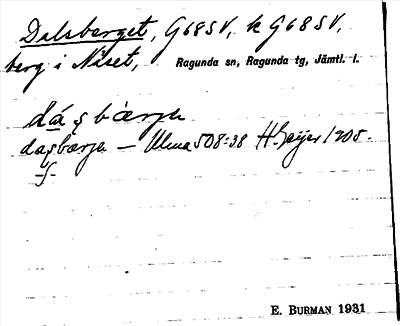 Dalsberget, G68SV, k G68SV,
berg i Näset, Ragunda sn, Ragunda tg, Jämtl. l.
dá ṣ bàrjə
daṣbærjə — Ulma 508:38 H. Geijer 1908.
E. BURMAN 1931